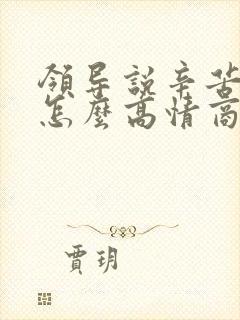 領导說辛苦
怎麼高情商
賈玥